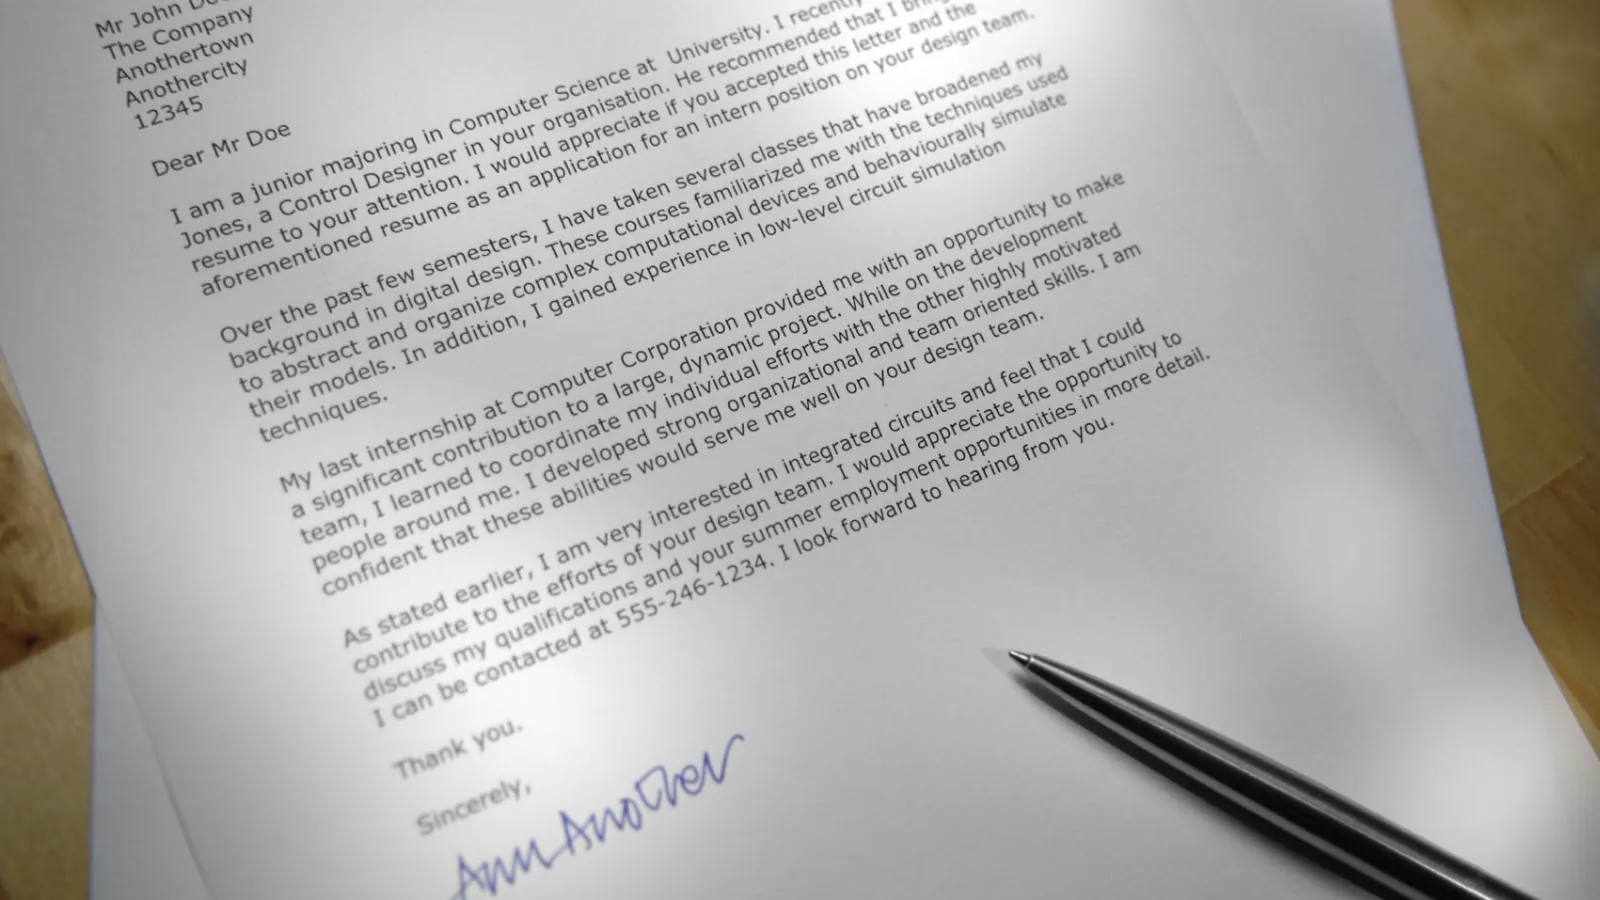 Mr John Doe
The Company
Anothertown
Anothercity
12345
Dear Mr Doe
I am a junior majoring in Computer Science at University. I recently
Jones, a Control Designer in your organisation. He recommended that I bring
resume to your attention. I would appreciate if you accepted this letter and the
aforementioned resume as an application for an intern position on your design team.
Over the past few semesters, I have taken several classes that have broadened my
background in digital design. These courses familiarized me with the techniques used
to abstract and organize complex computational devices and behaviourally simulate
their models. In addition, I gained experience in low-level circuit simulation
techniques.
My last internship at Computer Corporation provided me with an opportunity to make
a significant contribution to a large, dynamic project. While on the development
team, I learned to coordinate my individual efforts with the other highly motivated
people around me. I developed strong organizational and team oriented skills. I am
confident that these abilities would serve me well on your design team.
As stated earlier, I am very interested in integrated circuits and feel that I could
contribute to the efforts of your design team. I would appreciate the opportunity to
discuss my qualifications and your summer employment opportunities in more detail.
I can be contacted at 555-246-1234. I look forward to hearing from you.
Thank you.
Sincerely,
Ann Another